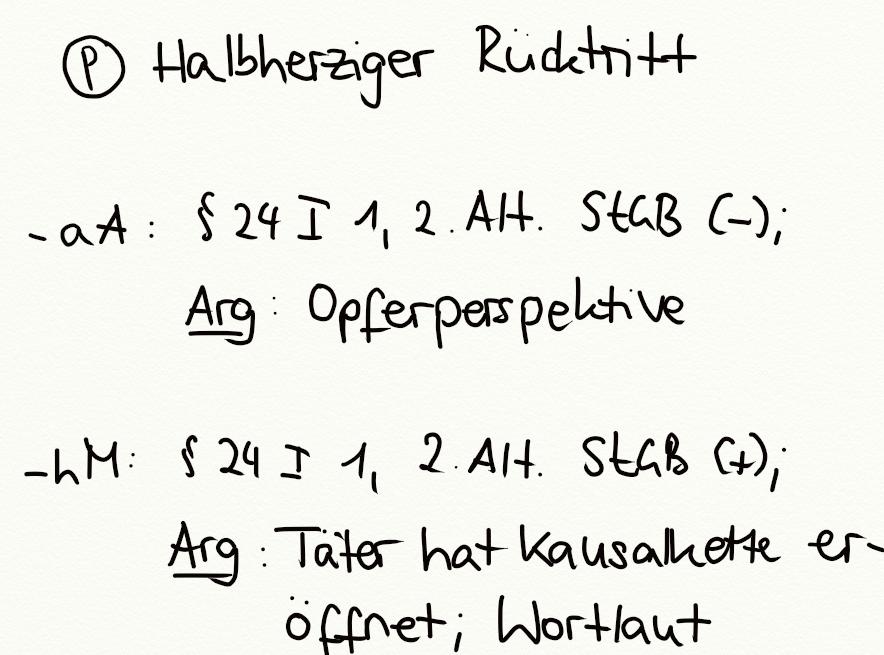 Ⓟ Halbherziger Rücktritt
- aA: § 24 I 1, 2. Alt. StGB (-);
Arg: Opferperspektive
- hM: § 24 I 1, 2. Alt. StGB (+);
Arg: Täter hat Kausalkette er-
öffnet; Wortlaut